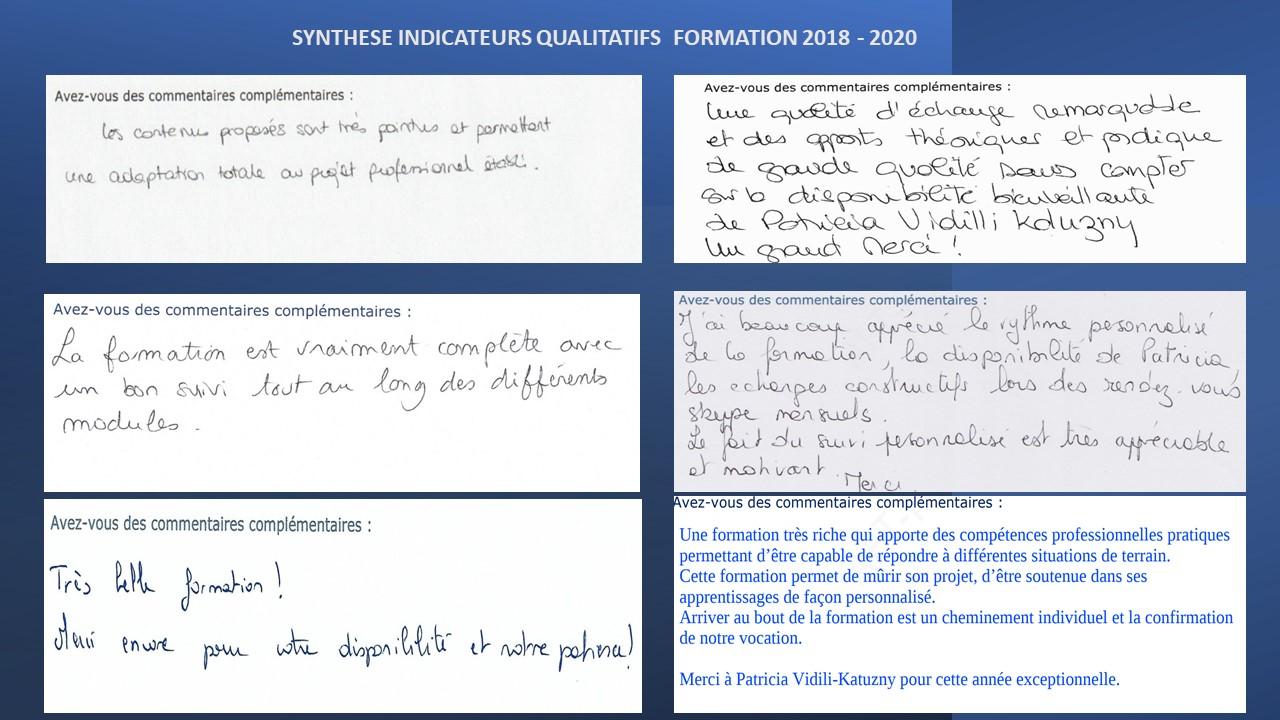 SYNTHESE INDICATEURS QUALITATIFS FORMATION 2018 - 2020
Avez-vous des commentaires complémentaires :
les contenus proposés sont très pointus et permettent
une adaptation totale au projet professionnel établi.
Avez-vous des commentaires complémentaires :
Une qualité d'échange remarquable
et des apports théoriques et pratique
de grande qualité sans compter
sur la disponibilité bienveillante
de Patricia Vidilli Katuzny
Un grand Merci !
Avez-vous des commentaires complémentaires :
La formation est vraiment complète avec
un bon suivi tout au long des différents
modules.
Avez-vous des commentaires complémentaires :
J'ai beaucoup apprécié le rythme personnalisé
de la formation, la disponibilité de Patricia
les echanges constructifs lors des rendez-vous
skype mensuels.
Le fait du suivi personnalisé est très appréciable
et motivant. Merci
Avez-vous des commentaires complémentaires :
Très belle formation !
Merci encore pour votre disponibilité et votre patience !
Avez-vous des commentaires complémentaires :
Une formation très riche qui apporte des compétences professionnelles pratiques
permettant d’être capable de répondre à différentes situations de terrain.
Cette formation permet de mûrir son projet, d’être soutenue dans ses
apprentissages de façon personnalisé.
Arriver au bout de la formation est un cheminement individuel et la confirmation
de notre vocation.
Merci à Patricia Vidili-Katuzny pour cette année exceptionnelle.